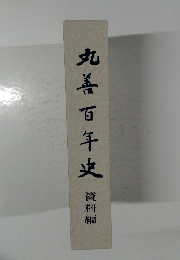 丸善百年史
資料編